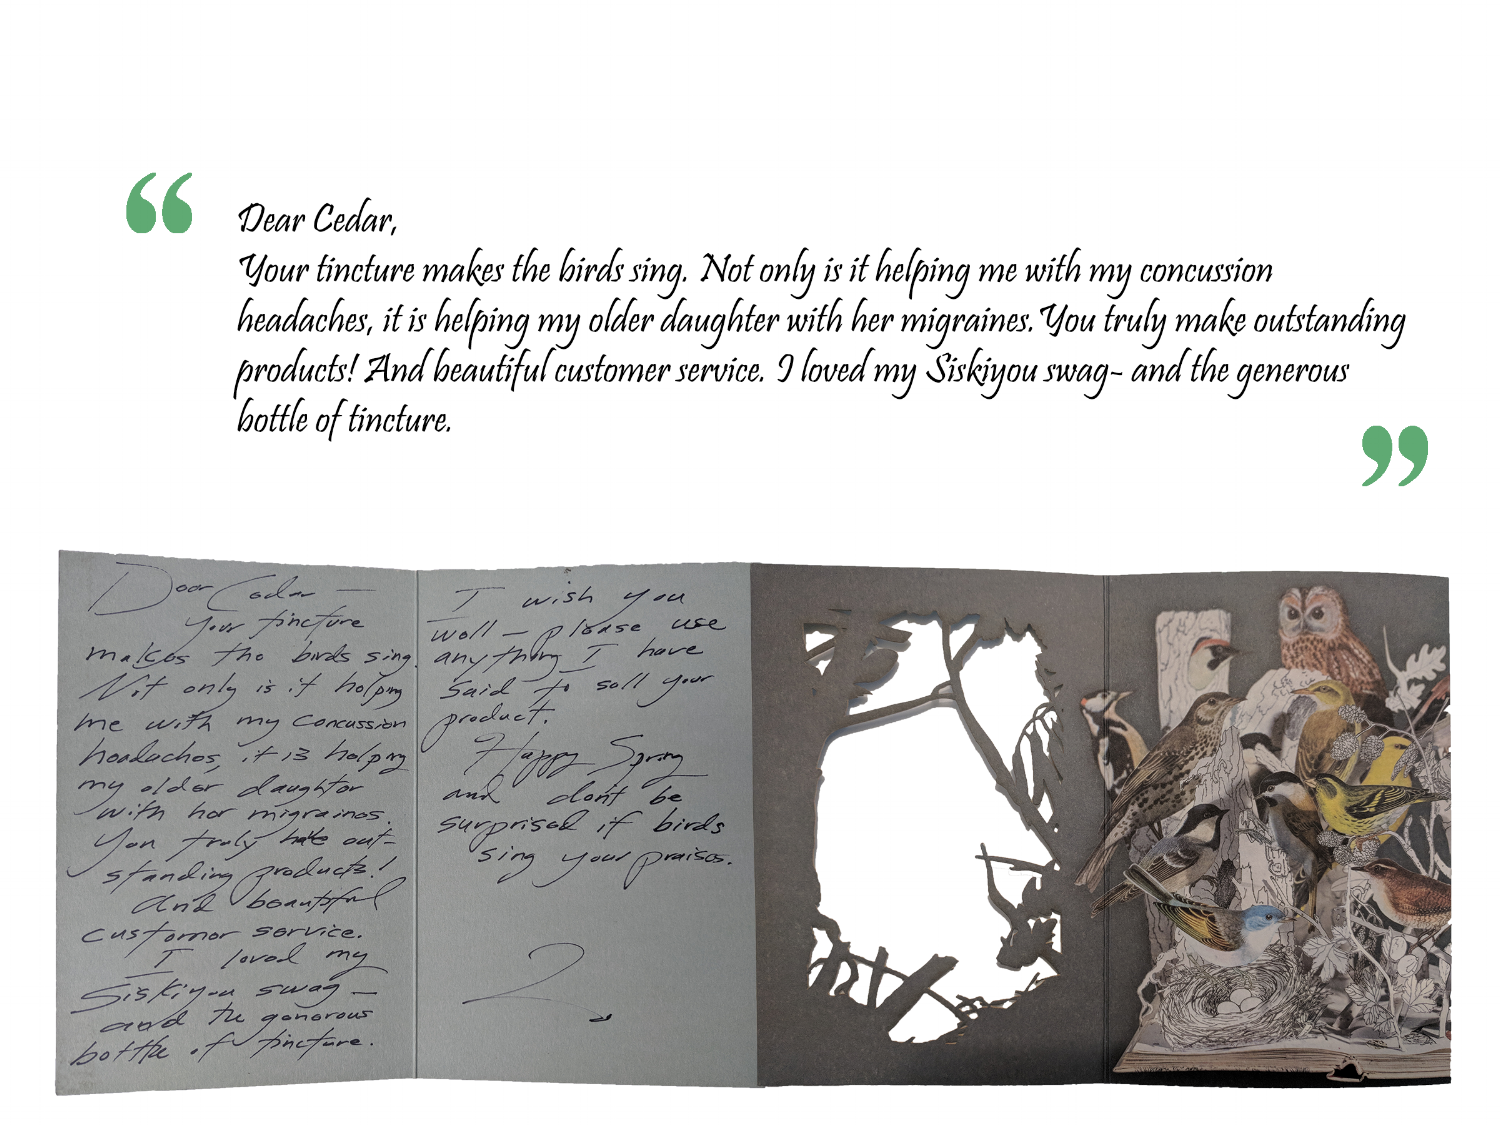 “
Dear Cedar,
Your tincture makes the birds sing. Not only is it helping me with my concussion
headaches, it is helping my older daughter with her migraines. You truly make outstanding
products! And beautiful customer service. I loved my Siskiyou swag- and the generous
bottle of tincture.
”
Dear Cedar —
Your tincture
makes the birds sing.
Not only is it helping
me with my concussion
headaches, it is helping
my older daughter
with her migraines.
You truly out-
standing products!
And beautiful
customer service.
I loved my
Siskiyou swag —
and the generous
bottle of tincture.
I wish you
well — please use
anything I have
said to sell your
product.
Happy Spring
and don't be
surprised if birds
sing your praises.